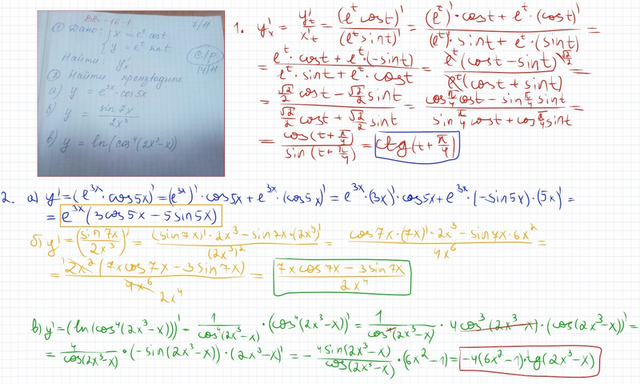 ① Дано: { x = e^t cost
{ y = e^t sint
Найти: y'ₓ
② Найти производную
а) y = e^{3x} · cos5x
б) y = sin 7x / 2x³
в) y = ln(cos⁴(2x³-x))
1. y'ₓ = y'ₜ / x'ₜ = (e^t cost)' / (e^t sint)' = ((e^t)' · cost + e^t · (cost)') / ((e^t)' · sint + e^t · (sint)') =
= (e^t · cost + e^t · (-sint)) / (e^t · sint + e^t · cost) = e^t (cost - sint)^{√2/2} / e^t (cost + sint) =
= (√2/2 cost - √2/2 sint) / (√2/2 cost + √2/2 sint) = (cos π/4 cost - sin π/4 sint) / (sin π/4 cost + cos π/4 sint) =
= cos(t + π/4) / sin(t + π/4) = ctg(t + π/4)
2. а) y' = (e^{3x} · cos5x)' = (e^{3x})' · cos5x + e^{3x} · (cos5x)' = e^{3x} · (3x)' · cos5x + e^{3x} · (-sin5x) · (5x)' =
= e^{3x} (3cos5x - 5sin5x)
б) y' = (sin7x / 2x³)' = ((sin7x)' · 2x³ - sin7x · (2x³)') / (2x³)² = (cos7x · (7x)' · 2x³ - sin7x · 6x²) / 4x⁶ =
= 2x² (7x cos7x - 3sin7x) / 4x⁶ 2x⁴ = (7x cos7x - 3sin7x) / 2x⁴
в) y' = (ln(cos⁴(2x³-x)))' = 1 / cos⁴(2x³-x) · (cos⁴(2x³-x))' = 1 / cos⁴(2x³-x) · 4cos³(2x³-x) · (cos(2x³-x))' =
= 4 / cos(2x³-x) · (-sin(2x³-x)) · (2x³-x)' = - 4sin(2x³-x) / cos(2x³-x) · (6x²-1) = -4(6x²-1) · tg(2x³-x)